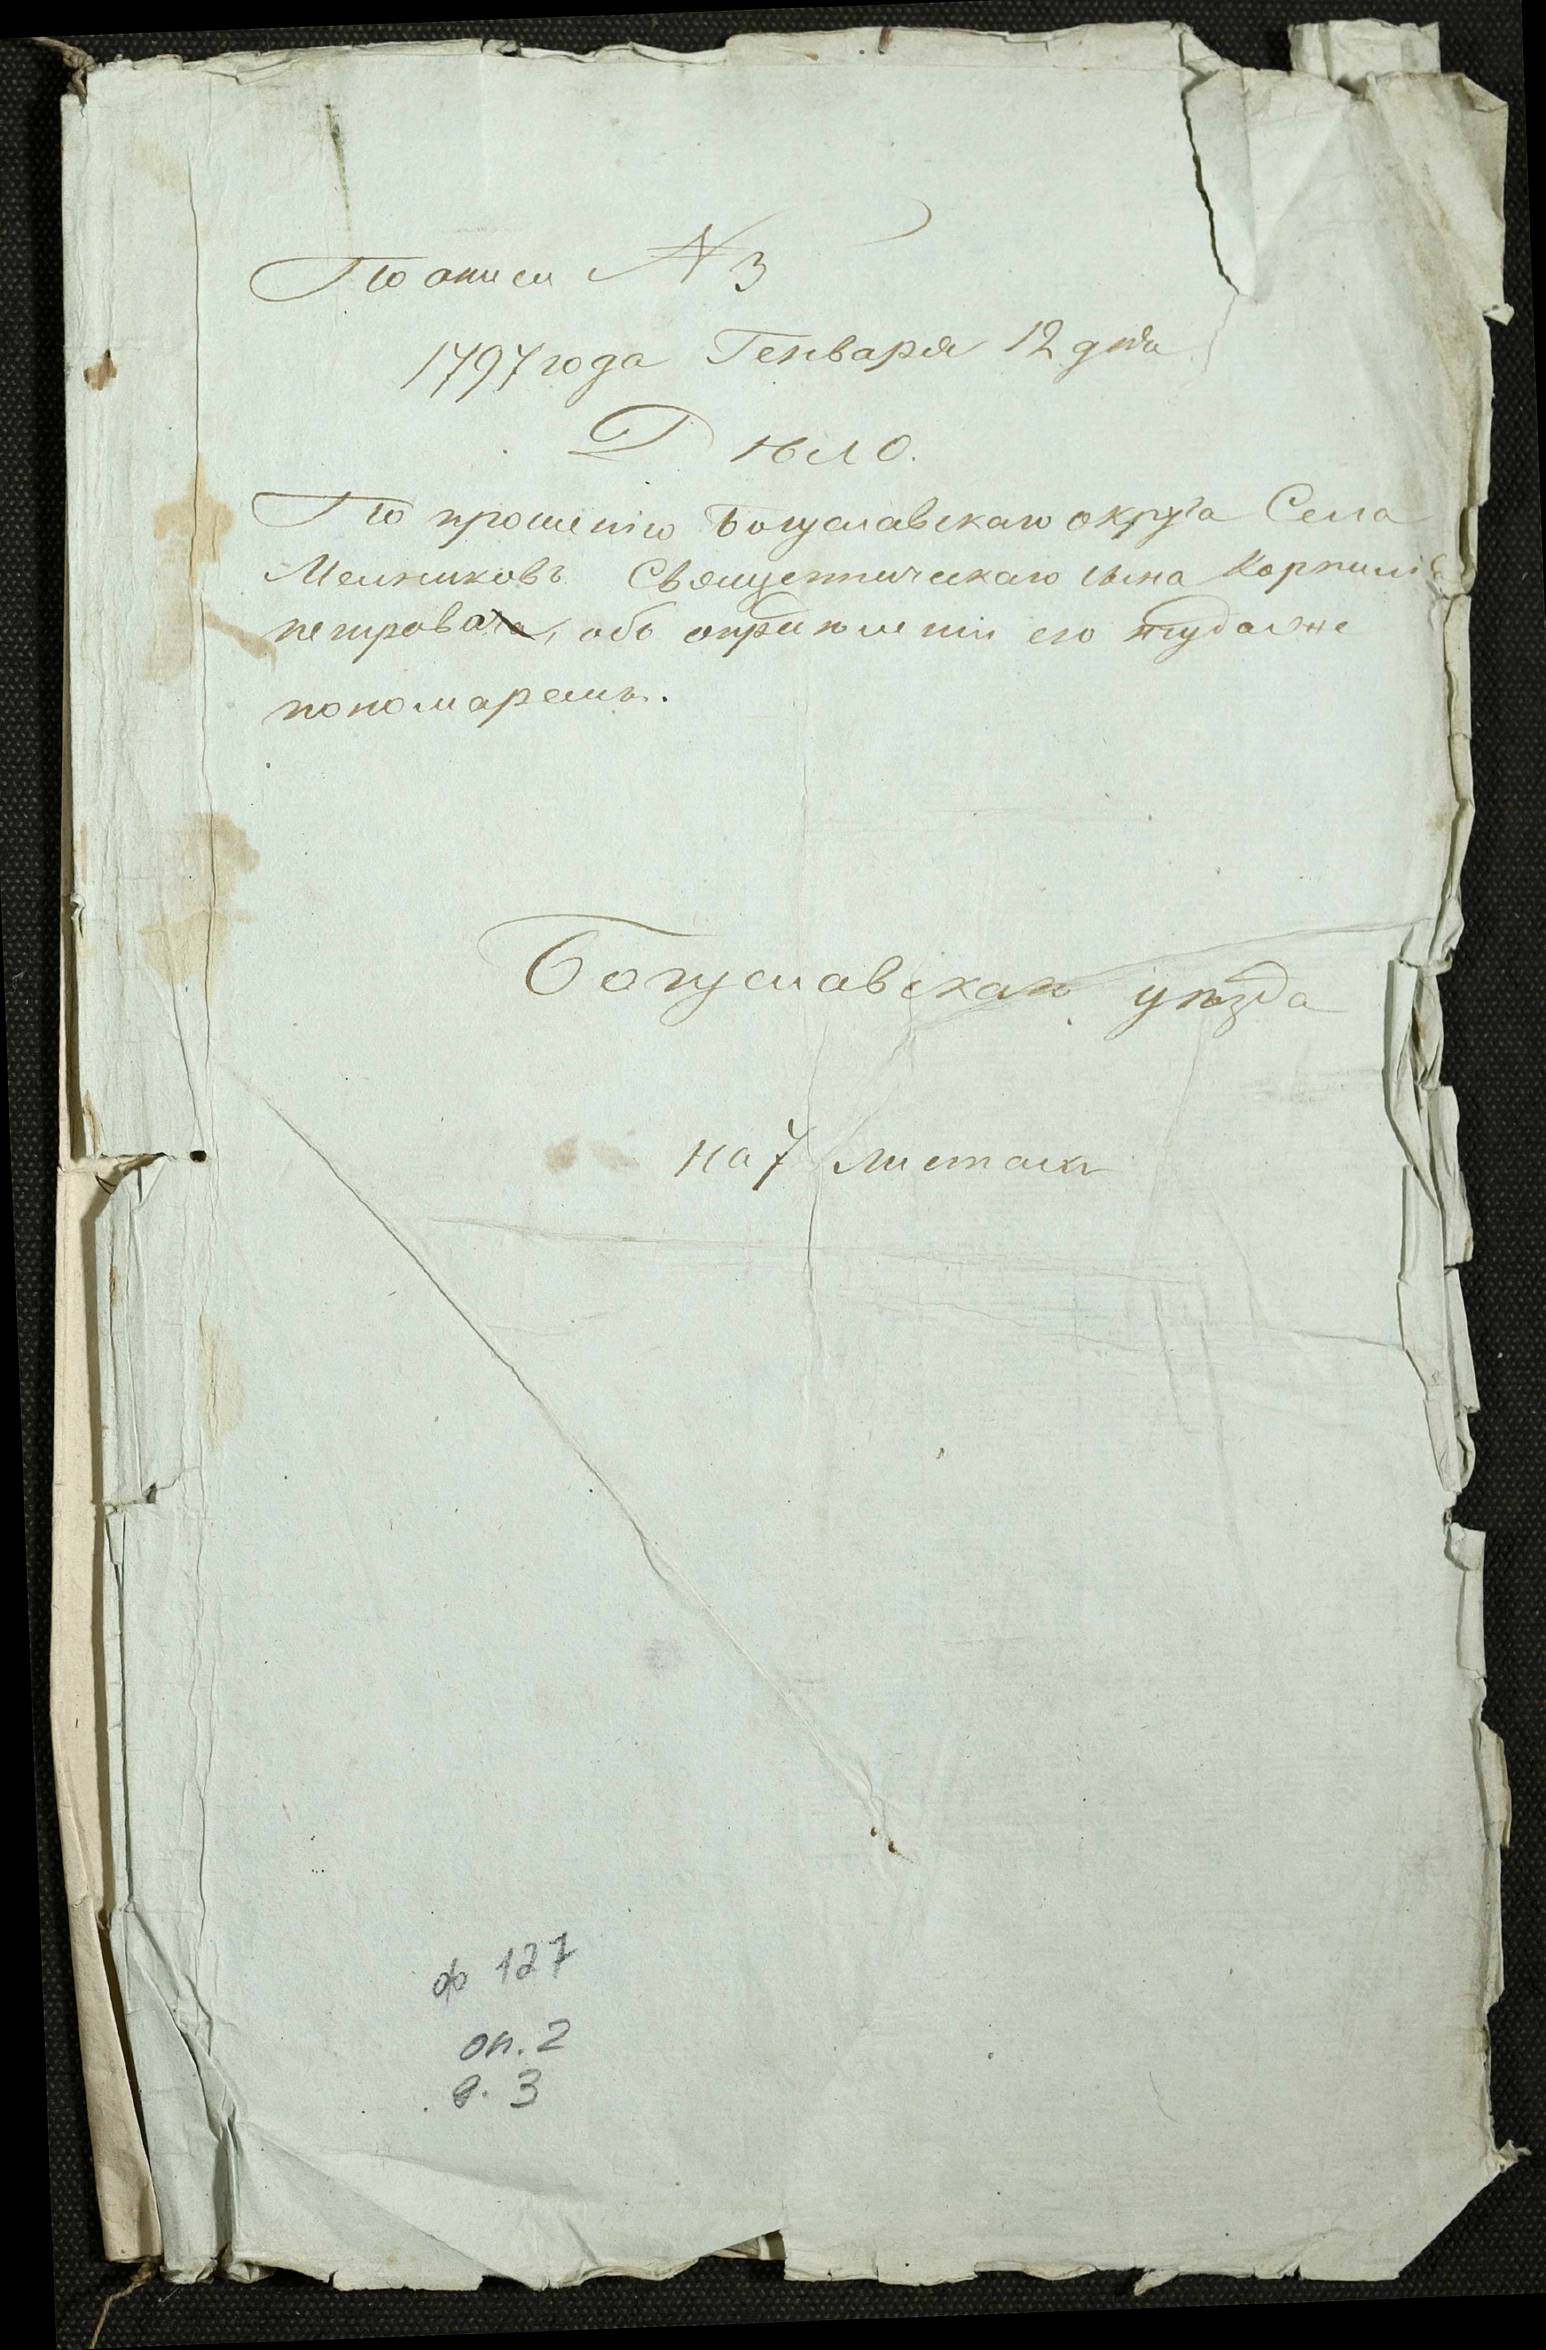 По описи № 3
1797 года Генваря 12 дня
Дѣло.
По прошенію Богуславскаго округа Села
Мельниковъ Священническаго сына Корнилія
петрова, объ опредѣленіи его туда же
пономаремъ.
Богуславскаго уѣзда
на 7 листахъ
ф 127
оп. 2
д. 3